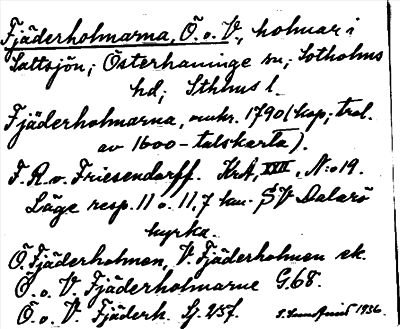 Fjäderholmarna, Ö. o. V., holmar i
Saltsjön; Österhaninge sn; Sotholms
hd; Sthlms l.
Fjäderholmarna, omkr. 1790 (kop; trol.
av 1600-talskarta).
F. R. v. Friesendorff. KrA, XVII, N:o 19.
Läge resp. 11 o. 11,7 km. SV Dalarö
kyrka.
Ö. Fjäderholmen, V. Fjäderholmen ek.
Ö. o. V. Fjäderholmarne G. 68.
Ö. o. V. Fjäderh. Sj. 257. 1936.